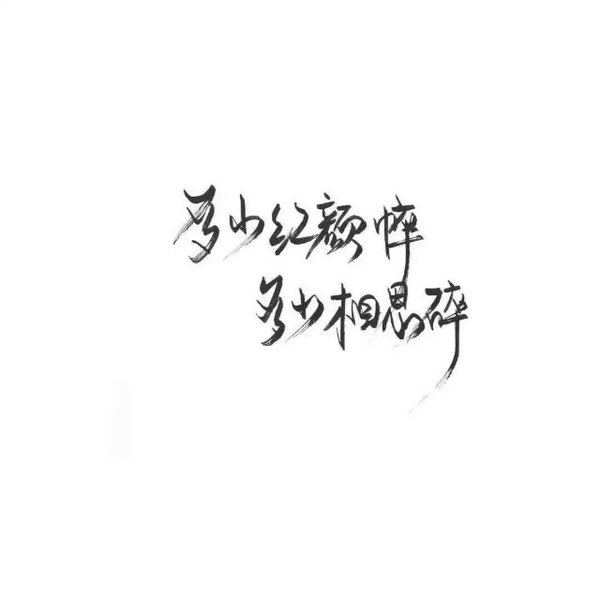 多少红颜悴
多少相思碎